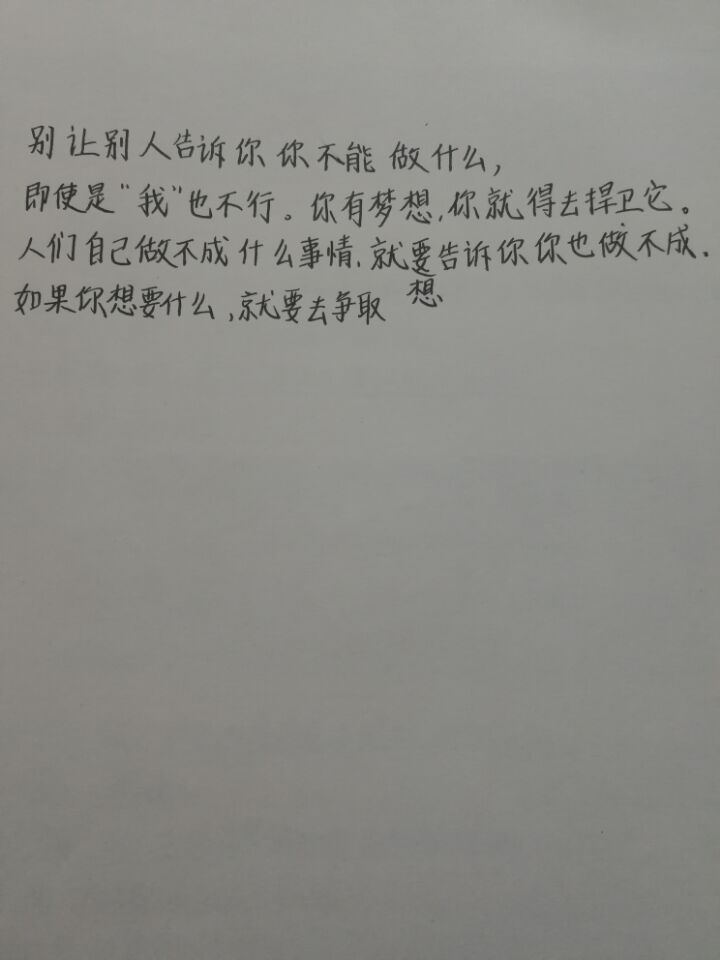 别让别人告诉你你不能做什么，
即使是“我”也不行。你有梦想，你就得去捍卫它。
人们自己做不成什么事情，就要告诉你你也做不成.
如果你想要什么，就要去争取
想